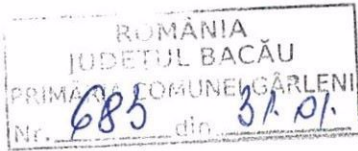 ROMÂNIA
JUDEȚUL BACĂU
PRIMĂRIA COMUNEI GÂRLENI
Nr. 685 din 31.01.